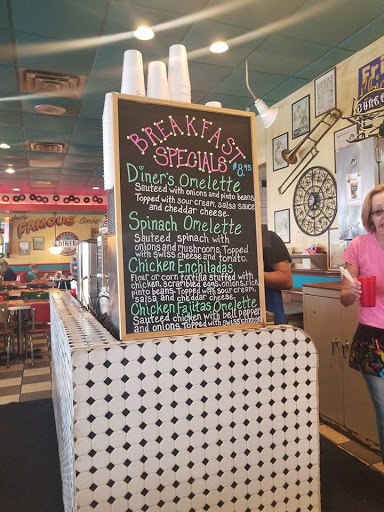 BREAKFAST
SPECIALS $8.95
Diner's Omelette
Sauteed with onions and pinto beans
Topped with sour cream, salsa sauce
and cheddar cheese.
Spinach Omelette
Sauteed spinach with
onions and mushrooms. Topped
with Swiss cheese and tomato.
Chicken Enchiladas
Flour or corn tortilla stuffed with
chicken, scrambled eggs, onions, rice,
pinto beans. Topped with sour cream,
salsa and cheddar cheese.
Chicken Fajitas Omelette
Sauteed chicken with bell pepper
and onions. Topped with swiss cheese
FAMOUS
FAMOUS
DINER